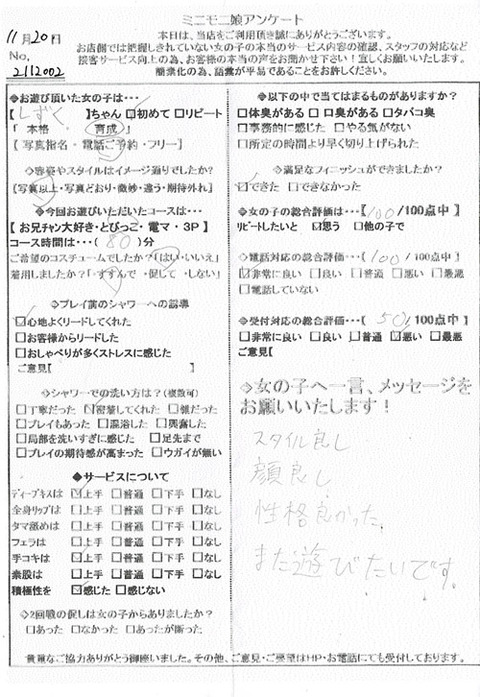 ミニモニ娘アンケート
11月20日
本日は、当店をご利用頂き誠にありがとうございます。
No.
お店側では把握しきれていない女の子の本当のサービス内容の確認、スタッフの対応など
2112002
接客サービス向上の為、お客様の本当の声をお聞かせ下さい！宜しくお願いいたします。
簡潔化の為、語彙が平易であることをお許しください。
◆お遊び頂いた女の子は…
【しずく】ちゃん ☑初めて □リピート
「 本格 ・ 育成 」
【 写真指名・電話ご予約・フリー】
◇容姿やスタイルはイメージ通りでしたか?
【写真以上・写真どおり・微妙・違う・期待外れ】
◆今回お遊びいただいたコースは…
【お兄チャン大好き・とびっこ・電マ・3P】
コース時間は…( 80 )分
ご希望のコスチュームでしたか?「はい・いいえ」
着用しましたか?「すすんで ・促して ・しない」
◇プレイ前のシャワーへの誘導
☑心地よくリードしてくれた
□お客様からリードした
□おしゃべりが多くストレスに感じた
ご意見【 】
◇シャワーでの洗い方は?(複数可)
□丁寧だった ☑密着してくれた □雑だった
□プレイもあった □混浴した □興奮した
□局部を洗いすぎに感じた □足先まで
□プレイの期待感が高まった □ウガイが無い
◆サービスについて
ディープキスは ☑上手 □普通 □下手 □なし
全身リップは □上手 □普通 □下手 □なし
タマ舐めは □上手 □普通 □下手 □なし
フェラは □上手 □普通 □下手 □なし
手コキは ☑上手 □普通 □下手 □なし
素股は □上手 □普通 □下手 □なし
積極性を ☑感じた □感じない
◇2回戦の促しは女の子からありましたか?
□あった □なかった □あったが断った
◆以下の中で当てはまるものがありますか?
□体臭がある □口臭がある □タバコ臭
□事務的に感じた □やる気がない
□所定の時間より早く切り上げられた
◇満足なフィニッシュができましたか?
☑できた □できなかった
◆女の子の総合評価は…【100/100点中】
リピートしたいと ☑思う □他の子で
◇電話対応の総合評価…( 100 /100点中)
☑非常に良い □良い □普通 □悪い □最悪
□電話していない
◆受付対応の総合評価…( 50 /100点中】
□非常に良い □良い □普通 ☑悪い □最悪
ご意見【
◇女の子へ一言、メッセージを
お願いいたします！
スタイル良し
顔良し
性格良かった
また遊びたいです。
貴重なご協力ありがとう御座いました。その他、ご意見・ご要望はHP・お電話にても受付しております。